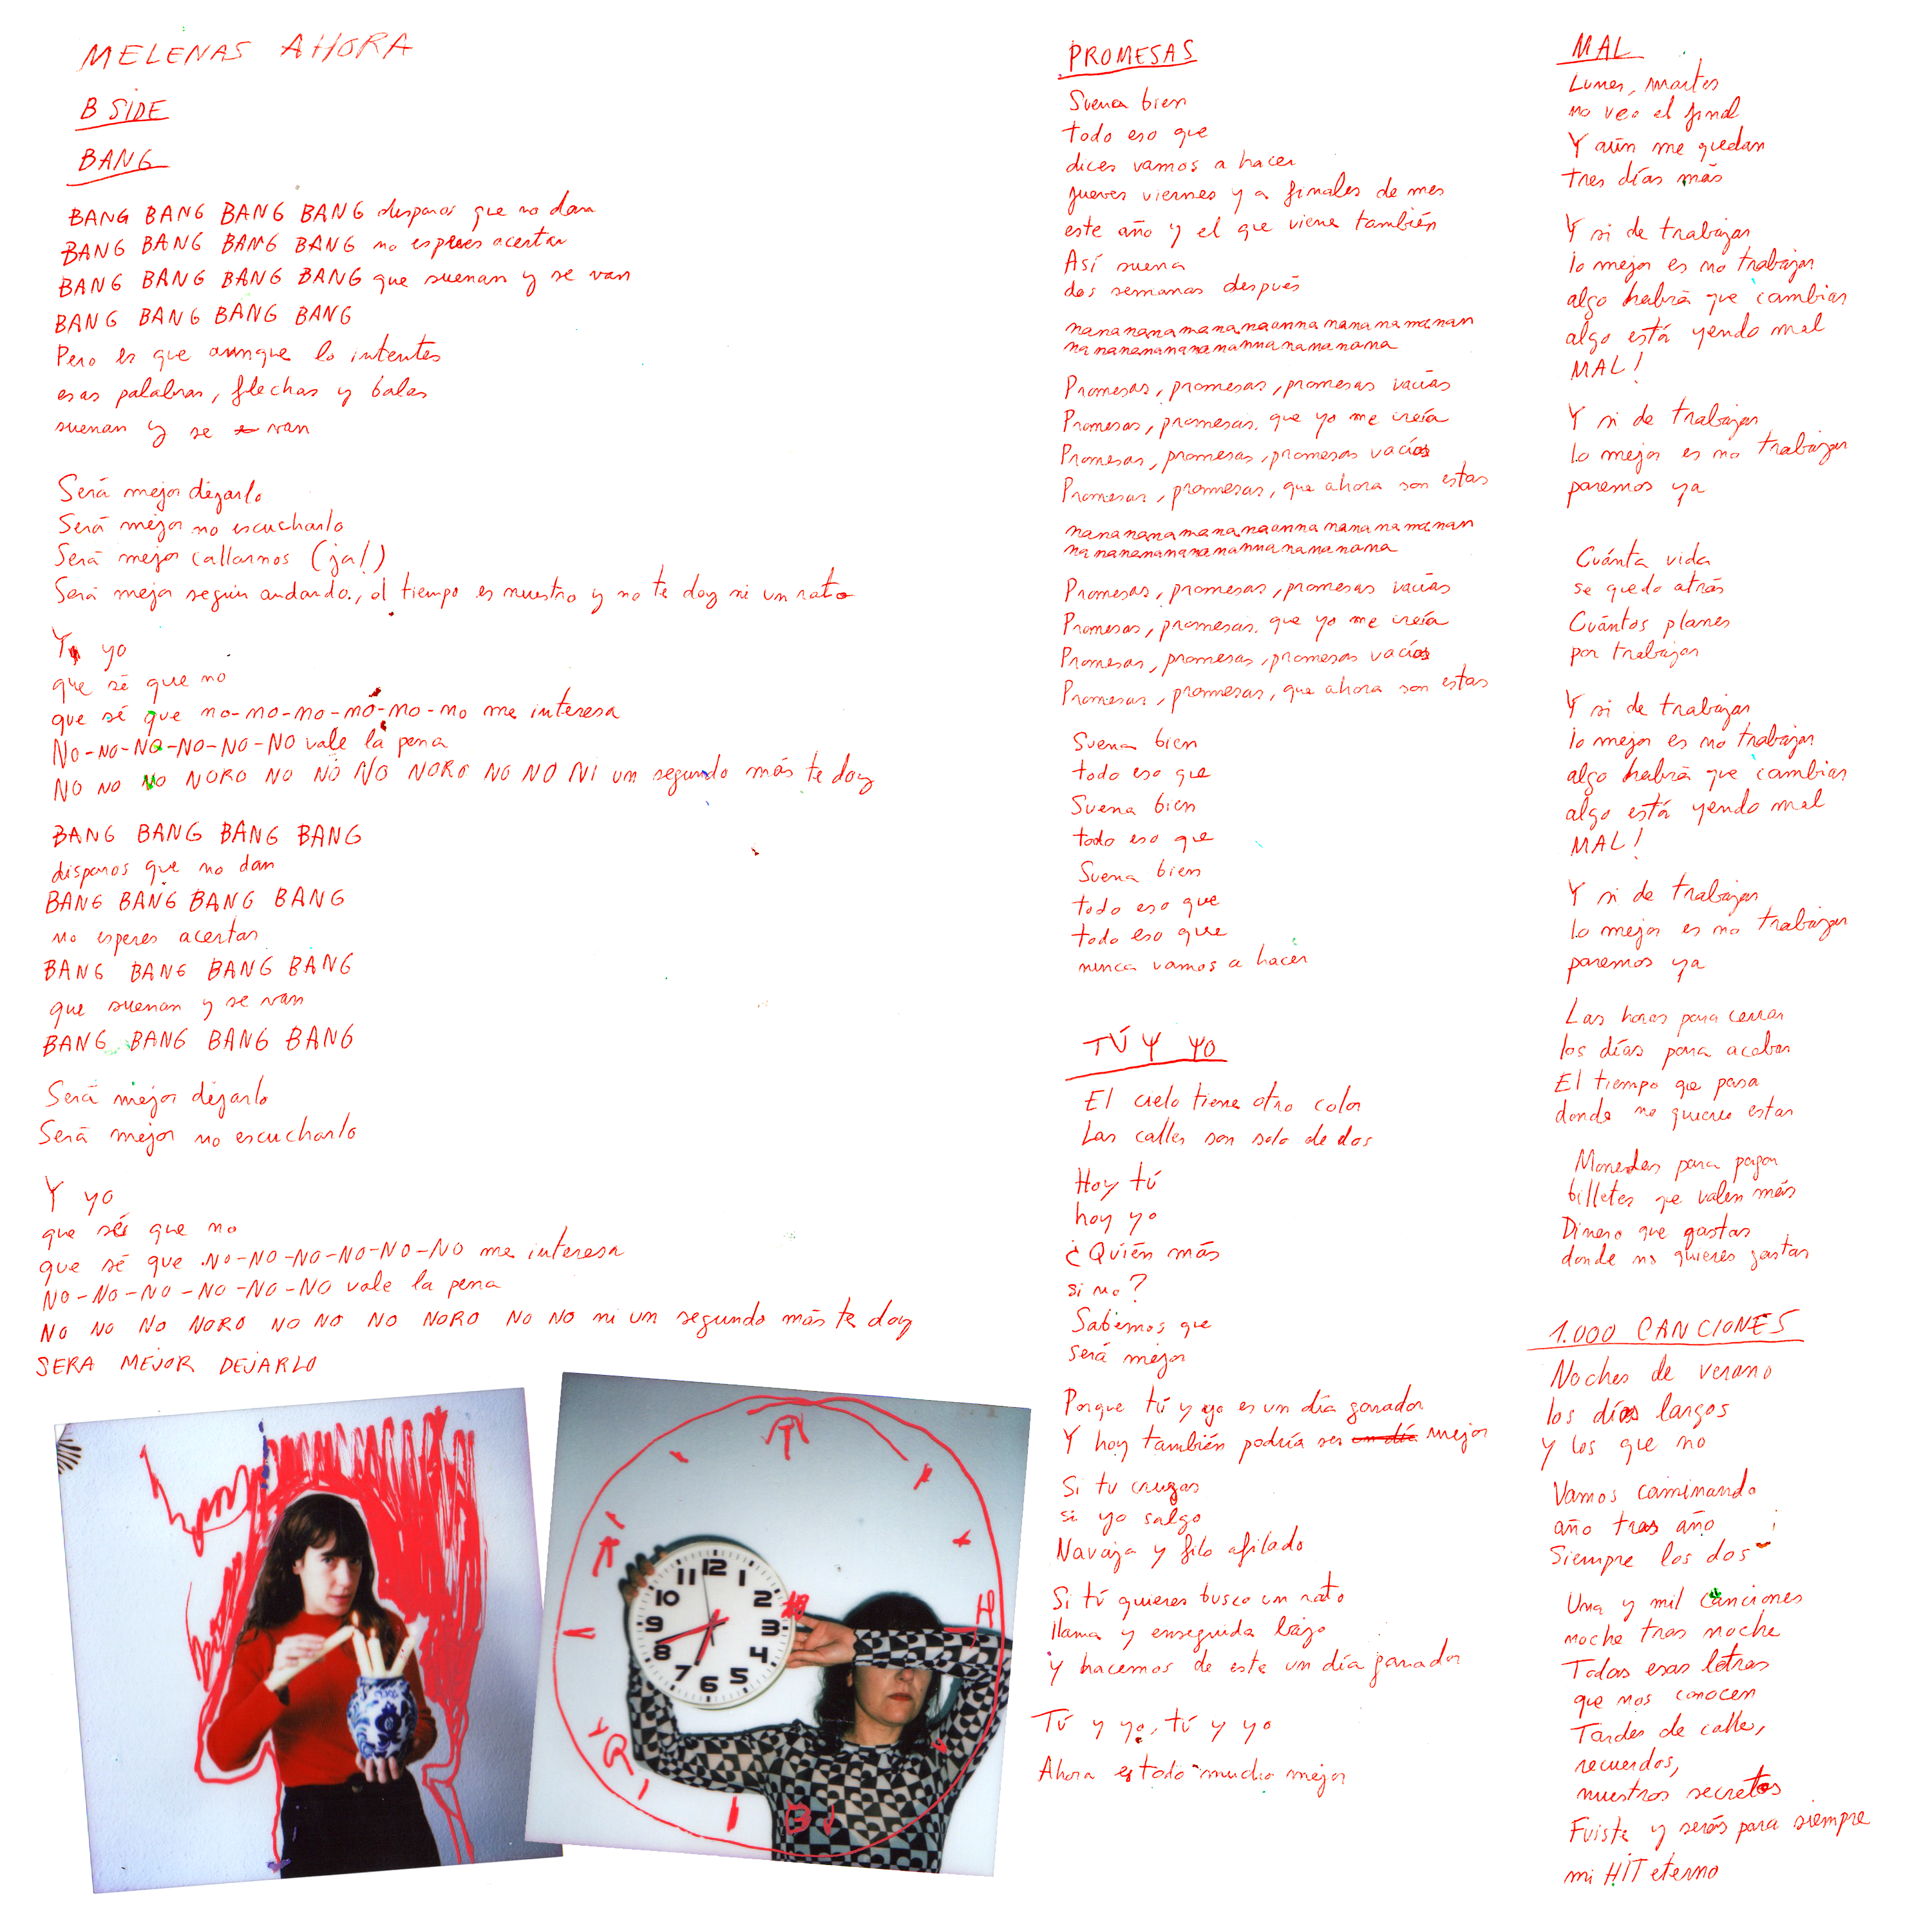 MELENAS AHORA
B SIDE
BANG
BANG BANG BANG BANG disparos que no dan
BANG BANG BANG BANG no esperes acertar
BANG BANG BANG BANG que suenan y se van
BANG BANG BANG BANG
Pero es que aunque lo intentes
esas palabras, flechas y balas
suenan y se van
Será mejor dejarlo
Será mejor no escucharlo
Será mejor callarnos (ja!)
Será mejor seguir andando, el tiempo es nuestro y no te doy ni un rato
Y yo
que sé que no
que sé que no-no-no-no-no-no me interesa
No-NO-NO-NO-NO-NO vale la pena
NO NO NO NORO NO NO NO NORO NO NO NI un segundo más te doy
BANG BANG BANG BANG
disparos que no dan
BANG BANG BANG BANG
no esperes acertar
BANG BANG BANG BANG
que suenan y se van
BANG BANG BANG BANG
Será mejor dejarlo
Será mejor no escucharlo
Y yo
que sé que no
que sé que NO-NO-NO-NO-NO-NO me interesa
NO-NO-NO-NO-NO-NO vale la pena
NO NO NO NORO NO NO NO NORO NO NO ni un segundo más te doy
SERA MEJOR DEJARLO
12
1
2
3
4
5
6
7
8
9
10
11
PROMESAS
Suena bien
todo eso que
dices vamos a hacer
jueves viernes y a finales de mes
este año y el que viene también
Así suena
dos semanas después
nanananamanananaannanananamanan
nanananananananamnanananana
Promesas, promesas, promesas vacías
Promesas, promesas, que yo me creía
Promesas, promesas, promesas vacías
Promesas, promesas, que ahora son estas
nanananamanananaannanananamanan
nanananananananamnanananana
Promesas, promesas, promesas vacías
Promesas, promesas, que yo me creía
Promesas, promesas, promesas vacías
Promesas, promesas, que ahora son estas
Suena bien
todo eso que
Suena bien
todo eso que
Suena bien
todo eso que
todo eso que
nunca vamos a hacer
TÚ Y YO
El cielo tiene otro color
Las calles son solo de dos
Hoy tú
hoy yo
¿Quién más
si no?
Sabemos que
será mejor
Porque tú y yo es un día ganador
Y hoy también podría ser un día mejor
Si tu cruzas
si yo salgo
Navaja y filo afilado
Si tú quieres busco un rato
llama y enseguida bajo
y hacemos de este un día ganador
Tú y yo, tú y yo
Ahora es todo mucho mejor
MAL
Lunes, martes
no veo el final
Y aún me quedan
tres días más
Y si de trabajar
lo mejor es no trabajar
algo habrá que cambiar
algo está yendo mal
MAL!
Y si de trabajar
lo mejor es no trabajar
paremos ya
Cuánta vida
se quedo atrás
Cuántos planes
por trabajar
Y si de trabajar
lo mejor es no trabajar
algo habrá que cambiar
algo está yendo mal
MAL!
Y si de trabajar
lo mejor es no trabajar
paremos ya
Las horas para cerrar
los días para acabar
El tiempo que pasa
donde no quiere estar
Monedas para pagar
billetes que valen más
Dinero que gastas
donde no quieres gastar
1.000 CANCIONES
Noches de verano
los días largos
y los que no
Vamos caminando
año tras año
Siempre los dos
Una y mil canciones
noche tras noche
Todas esas letras
que nos conocen
Tardes de calle,
recuerdos,
nuestros secretos
Fuiste y serás para siempre
mi HIT eterno